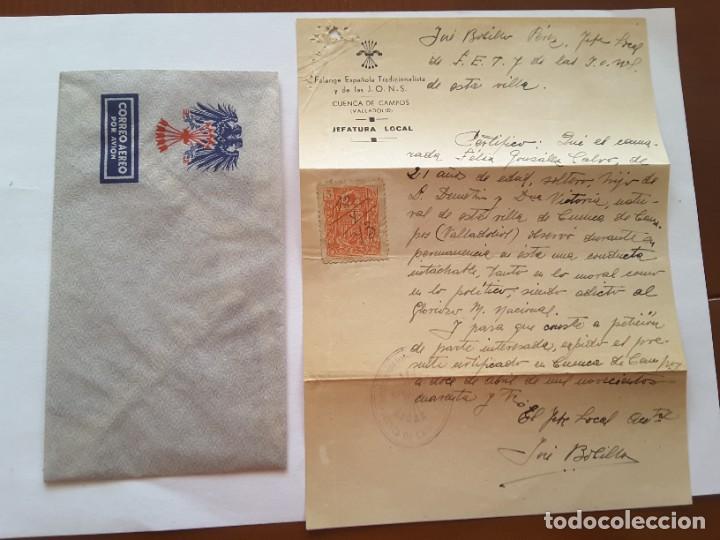 CORREO AEREO
POR AVION
Falange Española Tradicionalista
y de las J.O.N.S.
CUENCA DE CAMPOS
(VALLADOLID)
JEFATURA LOCAL
José Bolillo Pérez, Jefe Local
de F.E.T. y de las J.O.N.S.
de esta villa.
Certifico: Que el cama-
rada Félix González Calvo, de
21 años de edad, soltero, hijo de
D. Demetrio y Dña Victoria, natu-
ral de esta villa de Cuenca de Cam-
pos (Valladolid) observó durante su
permanencia en ésta una conducta
intachable, tanto en lo moral como
en lo político, siendo adicto al
Glorioso M. Nacional.
Y para que conste a petición
de parte interesada, expido el pre-
sente certificado en Cuenca de Campos
a doce de abril de mil novecientos
cuarenta y
El Jefe Local
José Bolillo
todocoleccion.net